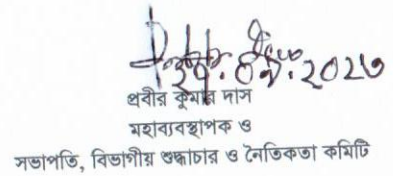 ২৭.০৮.২০২৩
প্রবীর কুমার দাস
মহাব্যবস্থাপক ও
সভাপতি, বিভাগীয় শুদ্ধাচার ও নৈতিকতা কমিটি